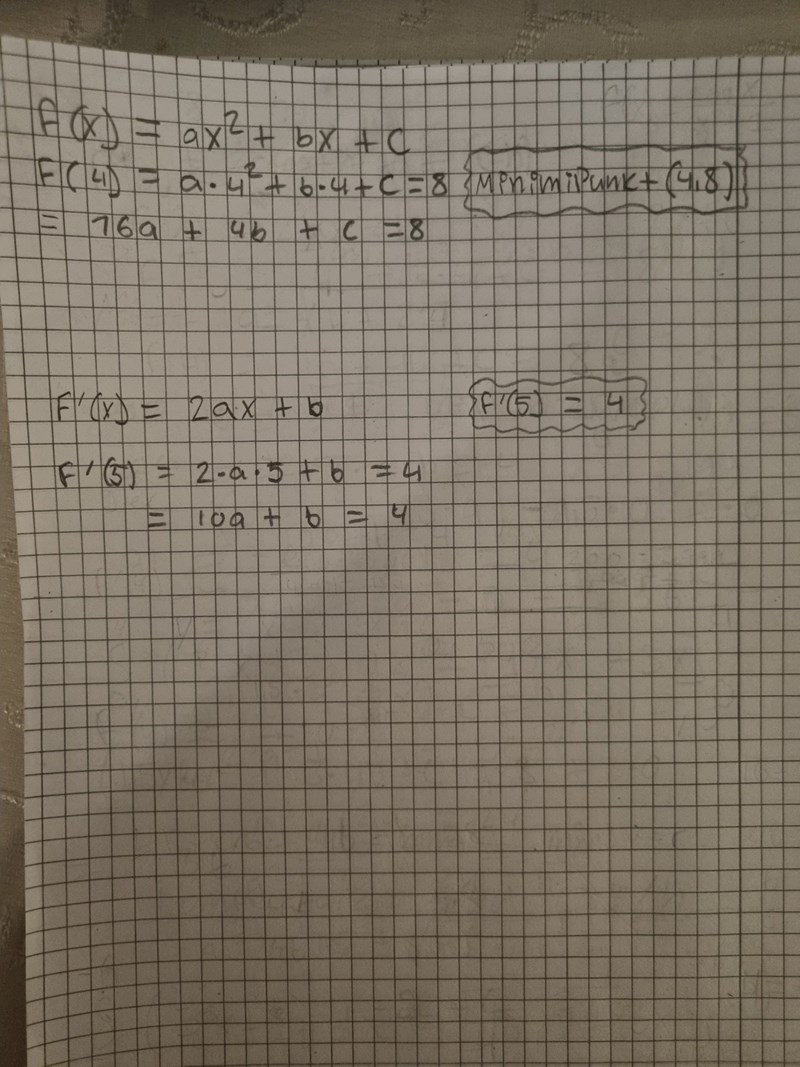 F(x) = ax² + bx + c
F(4) = a·4² + b·4 + c = 8 {Minimipunkt (4,8)}
= 16a + 4b + c = 8
F'(x) = 2ax + b {F'(5) = 4}
F'(5) = 2·a·5 + b = 4
= 10a + b = 4